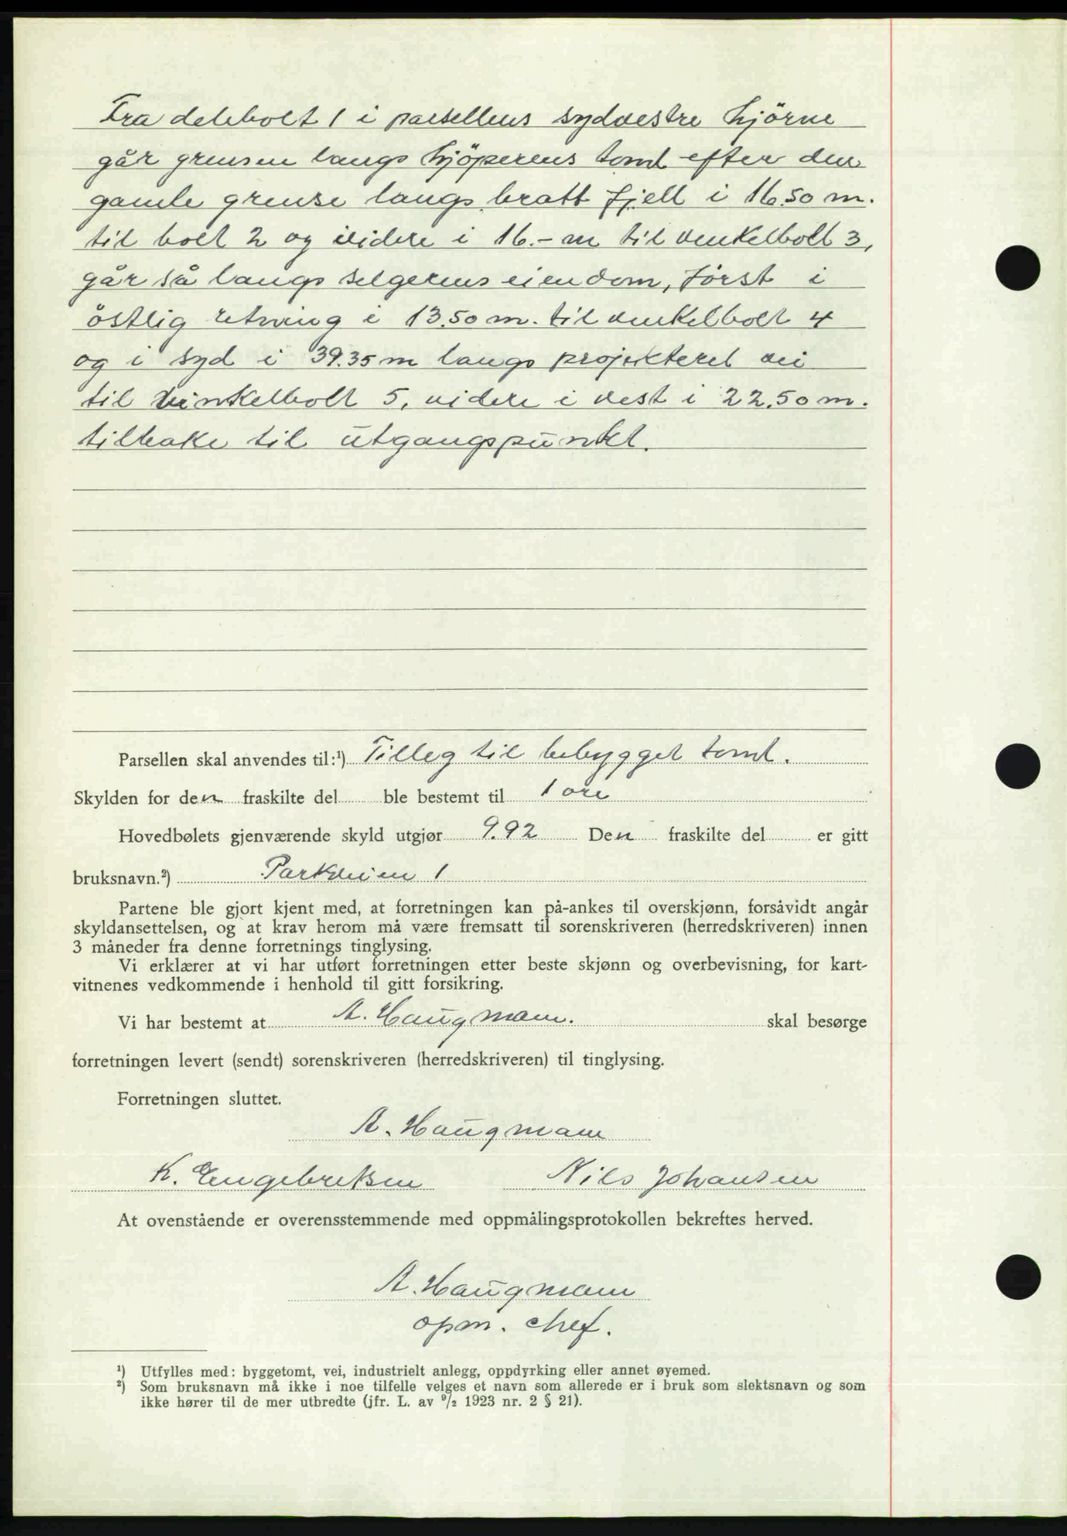 Fra delebolt 1 i parsellens sydvestre hjörne
går grensen langs kjöperens tomt efter den
gamle grense langs bratt fjell i 16.50 m.
til bolt 2 og videre i 16.- m til vinkelbolt 3,
går så langs selgerens eiendom, först i
östlig retning i 13.50 m. til vinkelbolt 4
og i syd i 39.35 m langs projektert vei
til vinkelbolt 5, videre i vest i 22.50 m.
tilbake til utgangspunkt.
Parsellen skal anvendes til:¹) Tilleg til bebygget tomt.
Skylden for den fraskilte del ble bestemt til 1 øre
Hovedbølets gjenværende skyld utgjør 9.92 Den fraskilte del er gitt
bruksnavn.²) Parkveien 1
Partene ble gjort kjent med, at forretningen kan på-ankes til overskjønn, forsåvidt angår
skyldansettelsen, og at krav herom må være fremsatt til sorenskriveren (herredskriveren) innen
3 måneder fra denne forretnings tinglysing.
Vi erklærer at vi har utført forretningen etter beste skjønn og overbevisning, for kart-
vitnenes vedkommende i henhold til gitt forsikring.
Vi har bestemt at A. Haugmann. skal besørge
forretningen levert (sendt) sorenskriveren (herredskriveren) til tinglysing.
Forretningen sluttet.
A. Haugmann
K. Engebretsen Nils Johansen
At ovenstående er overensstemmende med oppmålingsprotokollen bekreftes herved.
A. Haugmann
opm. chef.
¹) Utfylles med: byggetomt, vei, industrielt anlegg, oppdyrking eller annet øyemed.
²) Som bruksnavn må ikke i noe tilfelle velges et navn som allerede er i bruk som slektsnavn og som
ikke hører til de mer utbredte (jfr. L. av 9/2 1923 nr. 2 § 21).